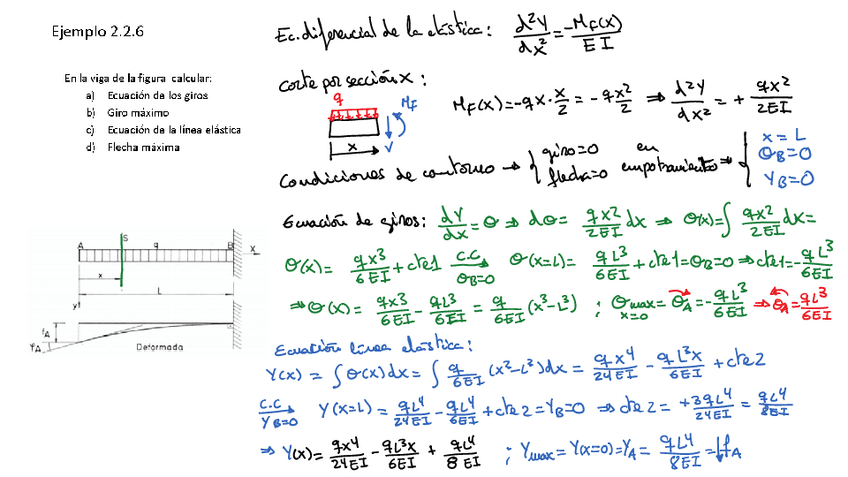 Ejemplo 2.2.6
En la viga de la figura calcular:
a) Ecuación de los giros
b) Giro máximo
c) Ecuación de la línea elástica
d) Flecha máxima
Ec. diferencial de la elástica: d²y/dx² = -M_F(x)/EI
Corte por sección x:
q
M_F
x
V
M_F(x) = -qx·x/2 = -qx²/2 ⇒ d²y/dx² = + qx²/2EI
Condiciones de contorno → { giro=0 flecha=0 en empotramiento ⇒ { x=L θ_B=0 y_B=0
Ecuación de giros: dy/dx = θ ⇒ dθ = qx²/2EI dx ⇒ θ(x) = ∫ qx²/2EI dx =
θ(x) = qx³/6EI + cte1 C.C θ_B=0 → θ(x=L) = qL³/6EI + cte1 = θ_B=0 ⇒ cte1 = -qL³/6EI
⇒ θ(x) = qx³/6EI - qL³/6EI = q/6EI (x³-L³) ; θmax x=0 = θ_A = -qL³/6EI ⇒ θ_A = qL³/6EI
Ecuación línea elástica:
Y(x) = ∫ θ(x)dx = ∫ q/6EI (x³-L³)dx = qx⁴/24EI - qL³x/6EI + cte2
C.C Y_B=0 → Y(x=L) = qL⁴/24EI - qL⁴/6EI + cte2 = Y_B=0 ⇒ cte2 = +3qL⁴/24EI = qL⁴/8EI
⇒ Y(x) = qx⁴/24EI - qL³x/6EI + qL⁴/8EI ; Ymax = Y(x=0) = Y_A = qL⁴/8EI = ↓f_A
S
A
q
B
x
x
L
y
f_A
φ_A
Deformada